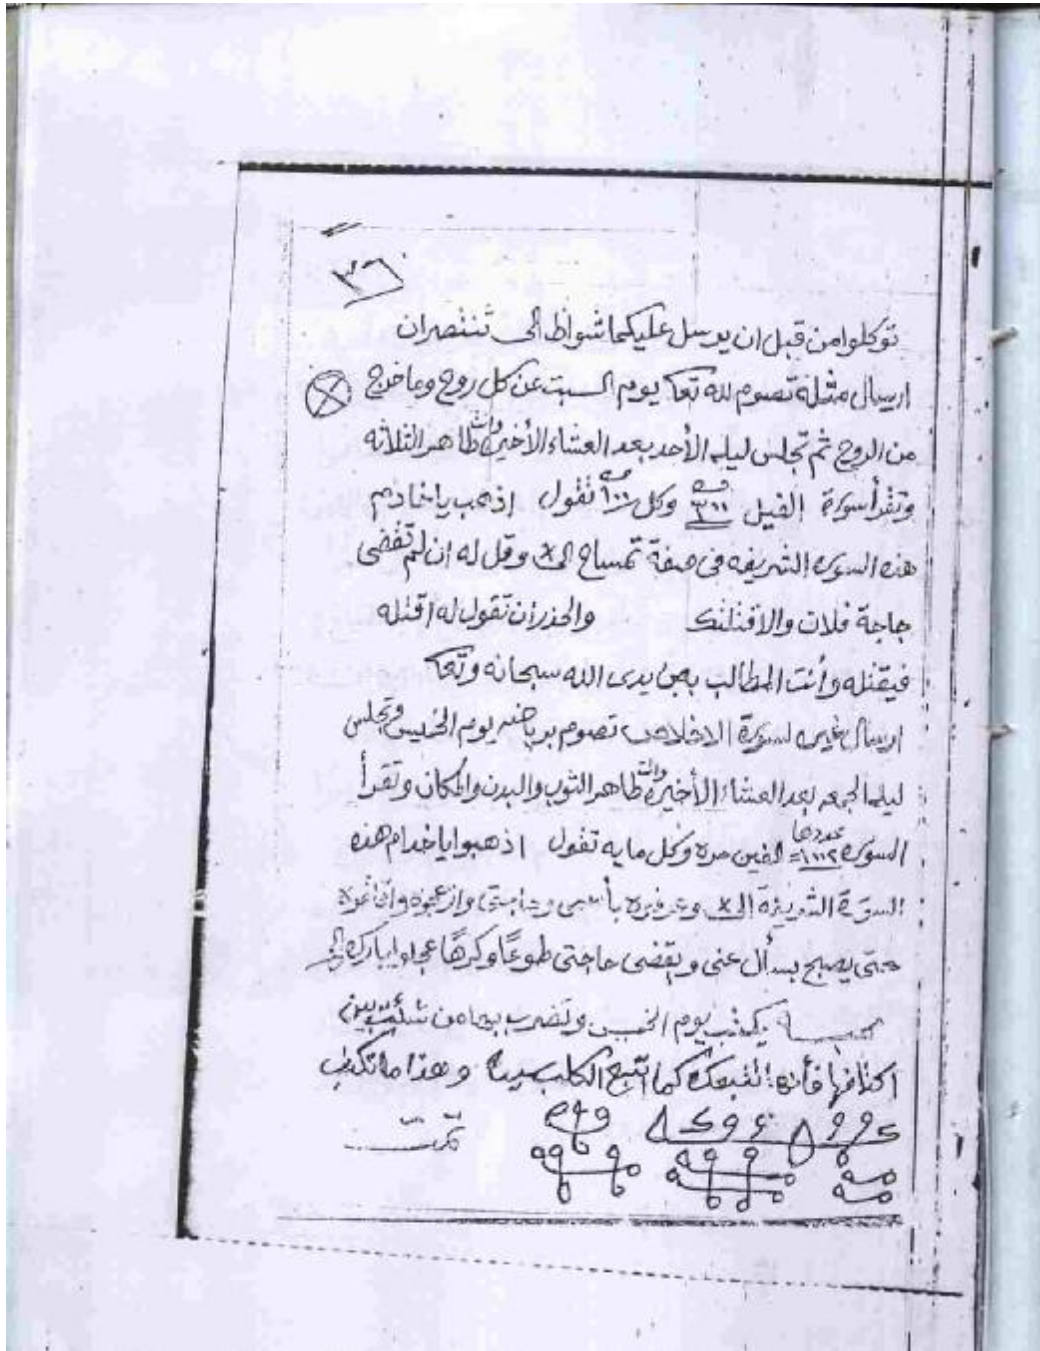 ٣٦
توكلوا من قبل ان يرسل عليكما شواظ الى تنتصران
ارسال مثله تصوم لله تعا يوم السبت عن كل روح وما خرج
من الروح ثم تجلس ليله الأحد بعد العشاء الأخيره وانت طاهر الثلاثه
وتقرأ سورة الفيل ٣٠٠ مره وكل ١٠٠ مره تقول اذهب ياخادم
هذه السوره الشريفه فى صفة تمساح الى وقل له ان لم تقضى
حاجة فلان والا قتلتك والحذر ان تقول له اقتله
فيقتله وأنت المطالب به بين يدى الله سبحانه وتعا
ارسال غيره لسورة الاخلاص تصوم برياضه يوم الخميس وتجلس
ليله الجمعه بعد العشاء الأخيره وانت طاهر الثوب والبدن والمكان وتقرأ
السوره عددها ١٠٠٢ الفين مره وكل مايه تقول اذهبوا ياخدام هذه
السورة الشريفة الى وعرفوه بأسمى وحاجتى وازعجوه
حتى يصبح يسأل عنى ويقضى حاجتى طوعًا وكرهًا
يكتب يوم الخميس وتضرب بها من شئت بين
اكتافها فأنها تتبعك كما اتبع الكلب وهذا ما تكتب
تمت